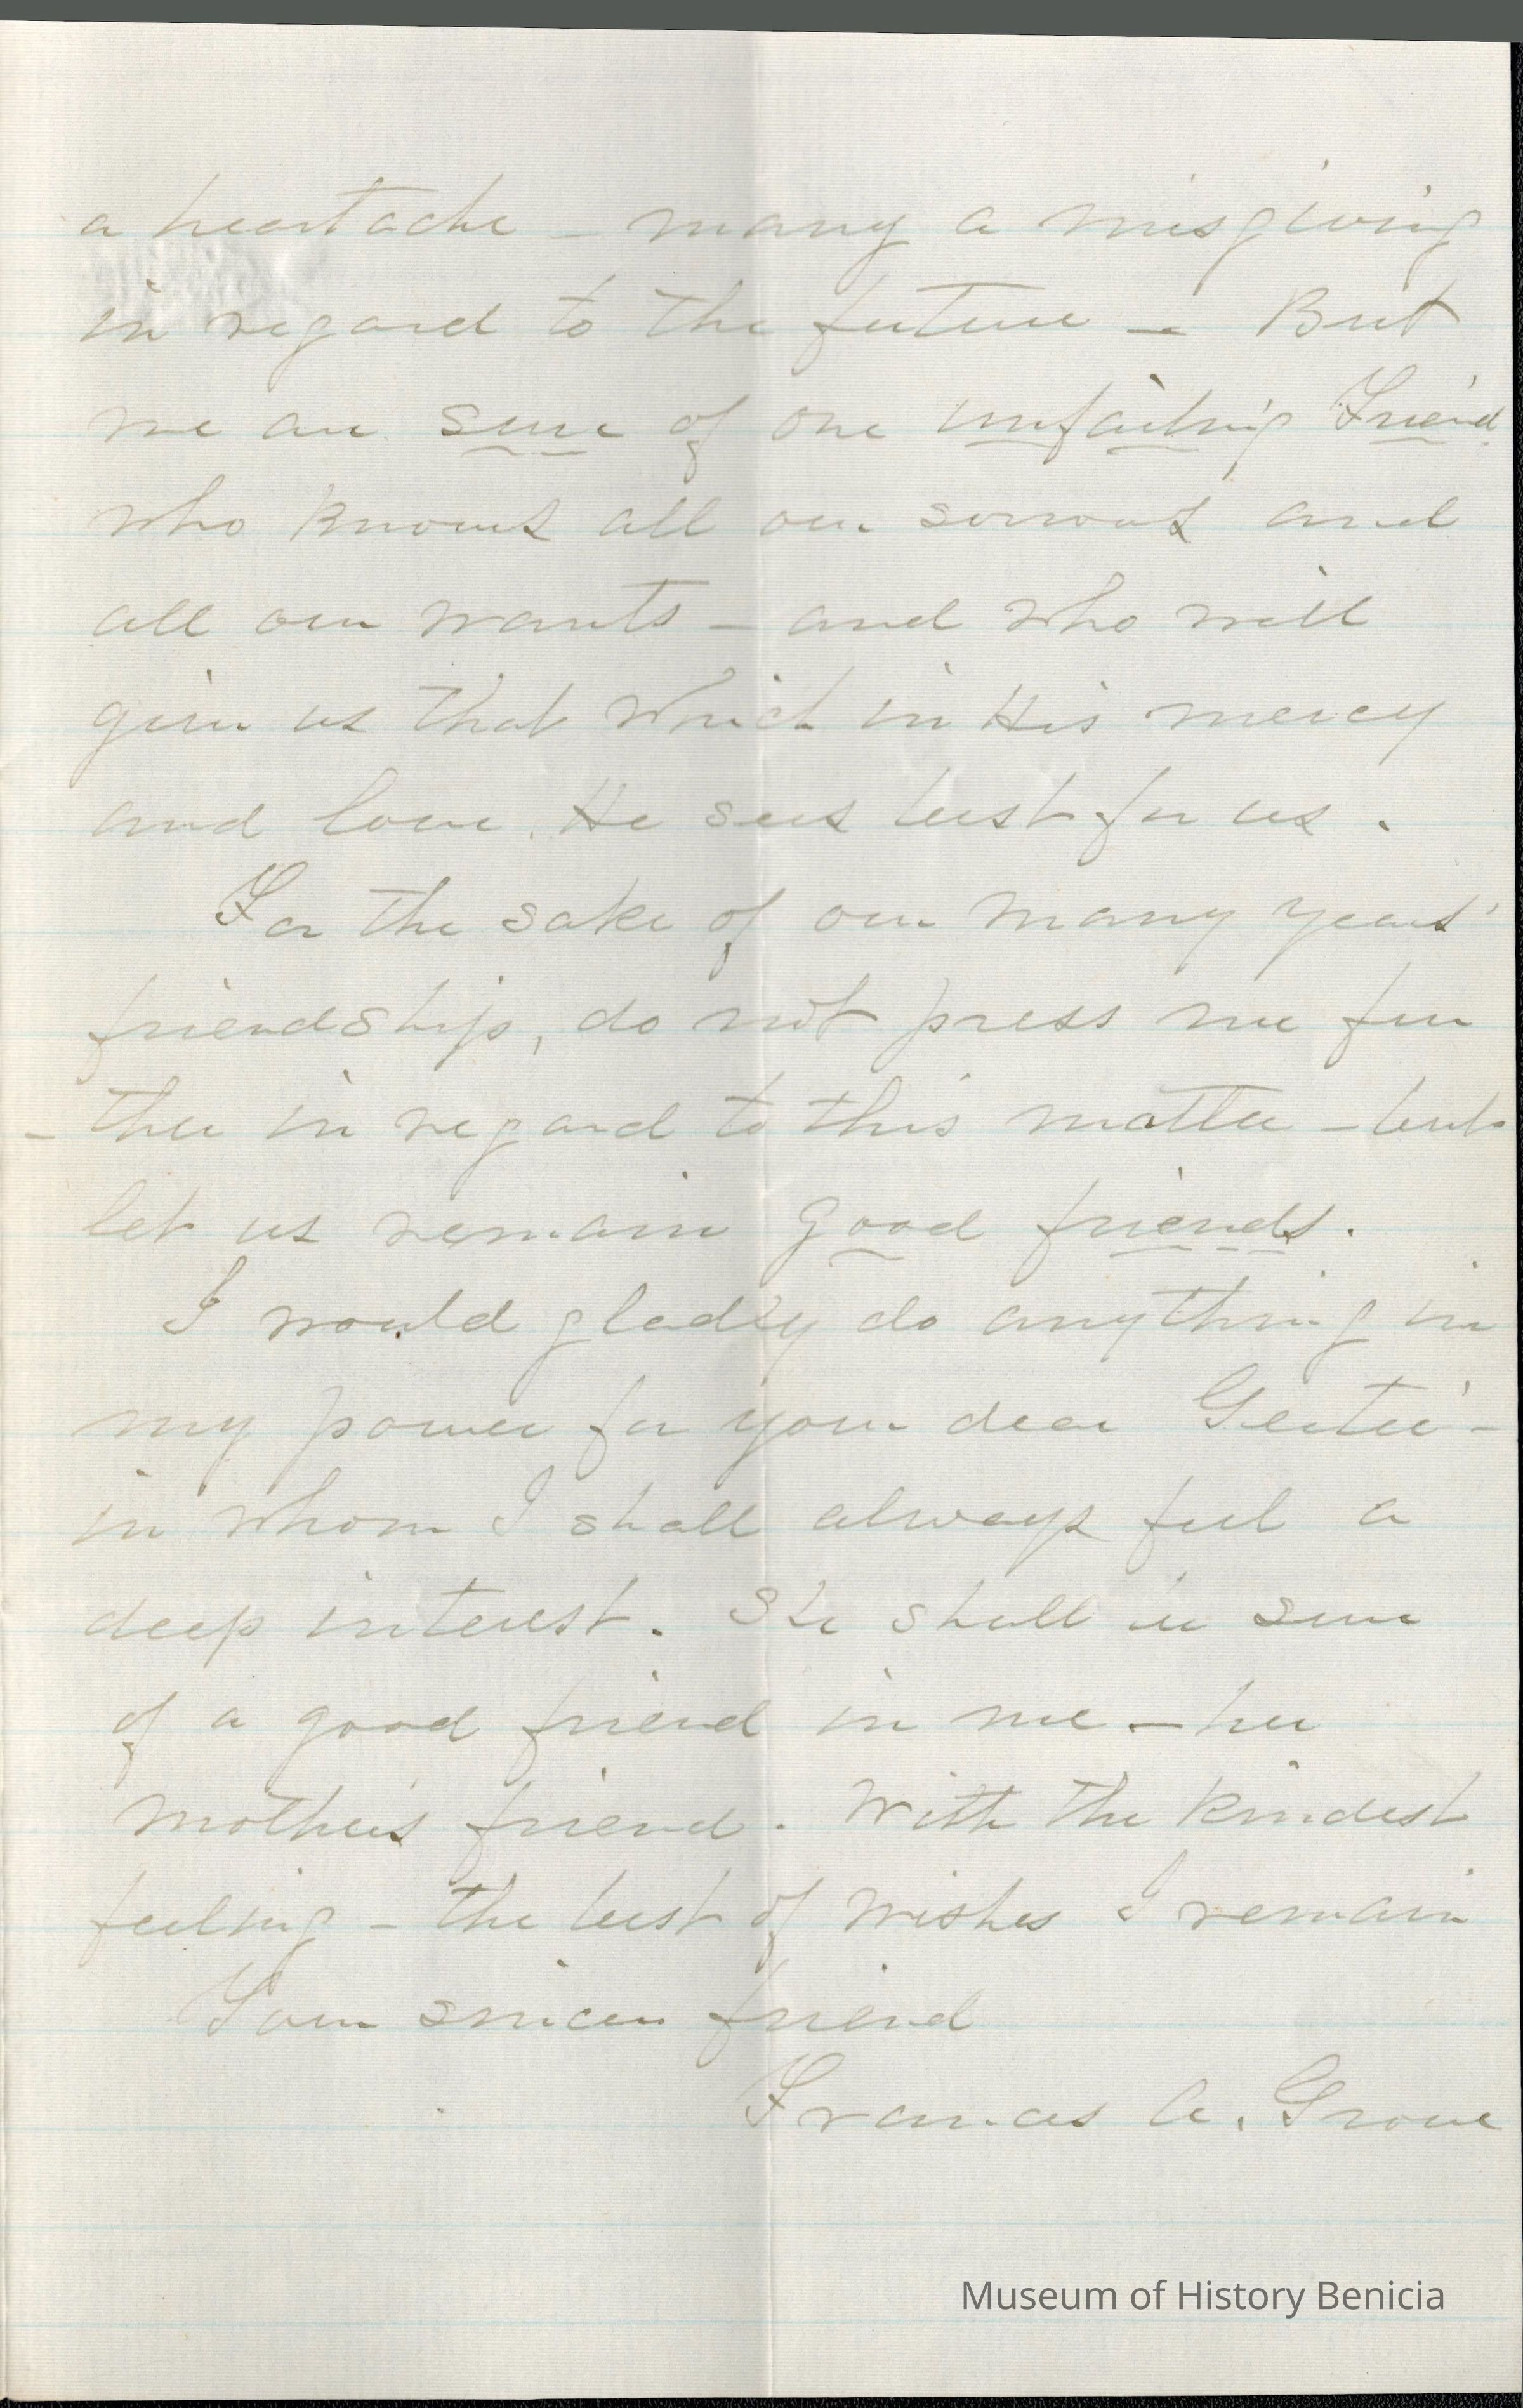 a heartache – many a misgiving
in regard to the future – But
we are sure of one unfailing Friend
who knows all our sorrows and
all our wants – and who will
give us that which in His mercy
and love He sees best for us.
For the sake of our many years'
friendship, do not press me fur
-ther in regard to this matter – but
let us remain good friends.
I would gladly do anything in
my power for your dear Gertie –
in whom I shall always feel a
deep interest. She shall be sure
of a good friend in me – her
mother's friend. With the kindest
feeling – the best of wishes I remain
Your sincere friend
Frances A. Grove
Museum of History Benicia